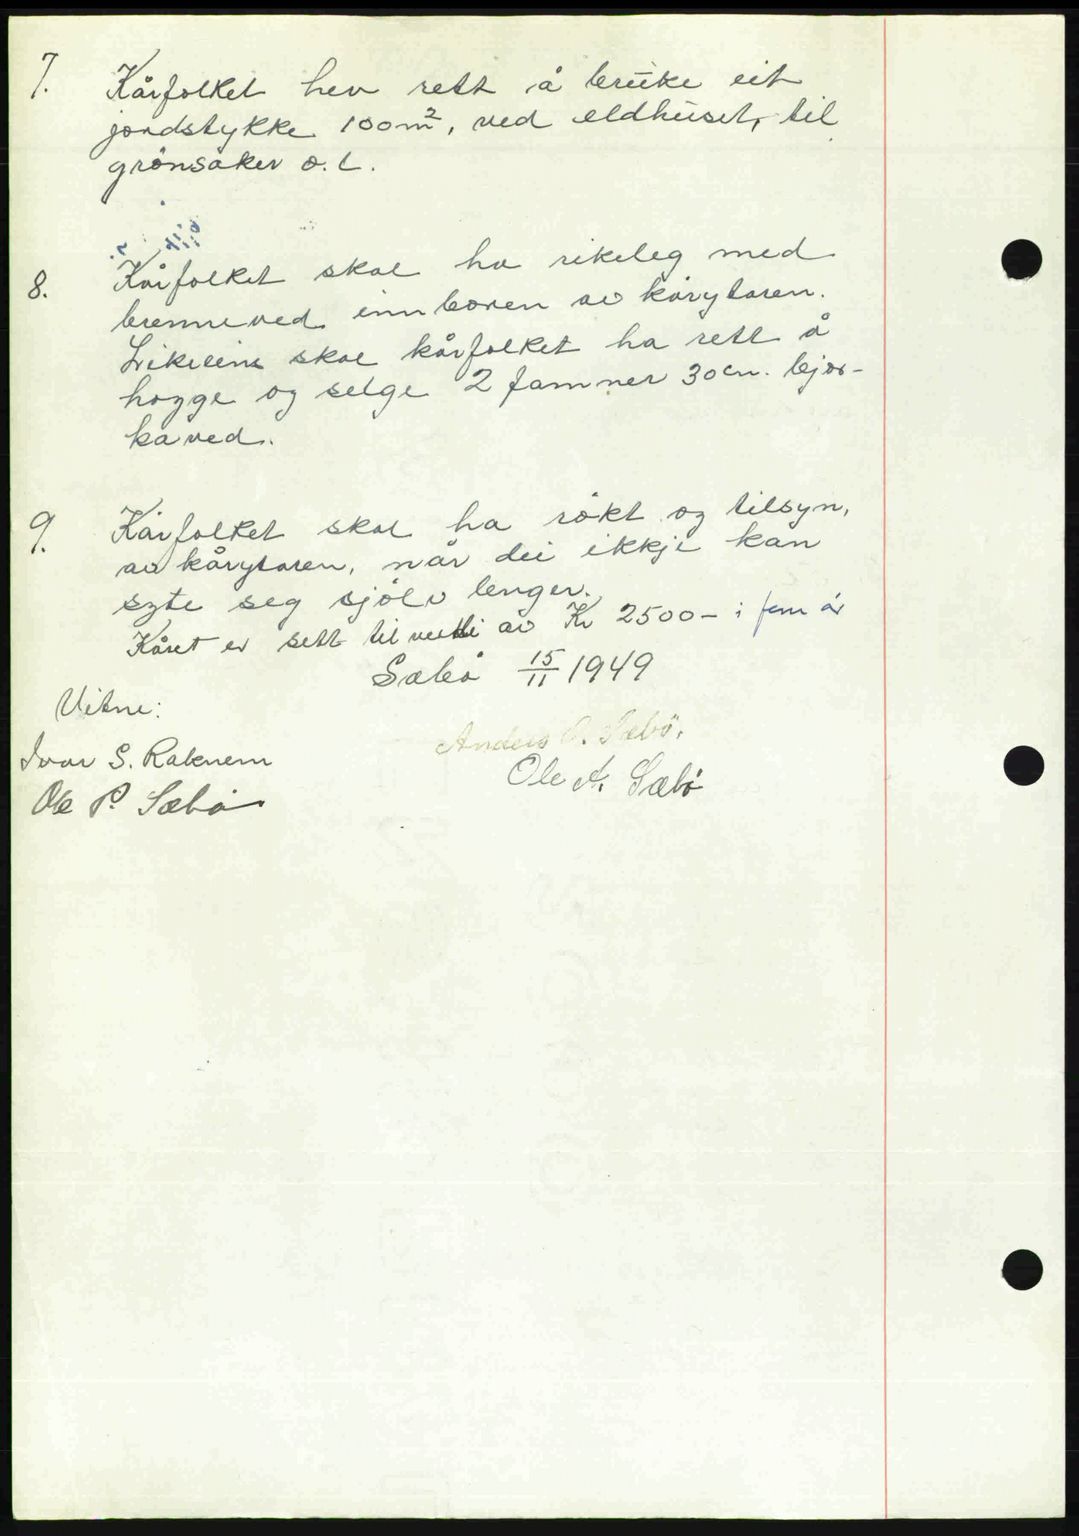 7. Kårfolket hev rett å bruke eit
jordstykke 100 m², ved eldhuset, til
grønsaker o.l.
8. Kårfolket skal ha rikeleg med
brenneved innboren av kårytaren.
Likeleins skal kårfolket ha rett å
hogge og selge 2 famner 30 cm. bjør-
kaved.
9. Kårfolket skal ha røkt og tilsyn,
av kårytaren, når dei ikkje kan
syte seg sjølv lenger.
Kåret er sett til verdi av Kr 2500– i fem år
Sæbø 15/11 1949
Vitne:
Anders O. Sæbø.
Ivar S. Raknem
Ole A. Sæbø
Ole P. Sæbø